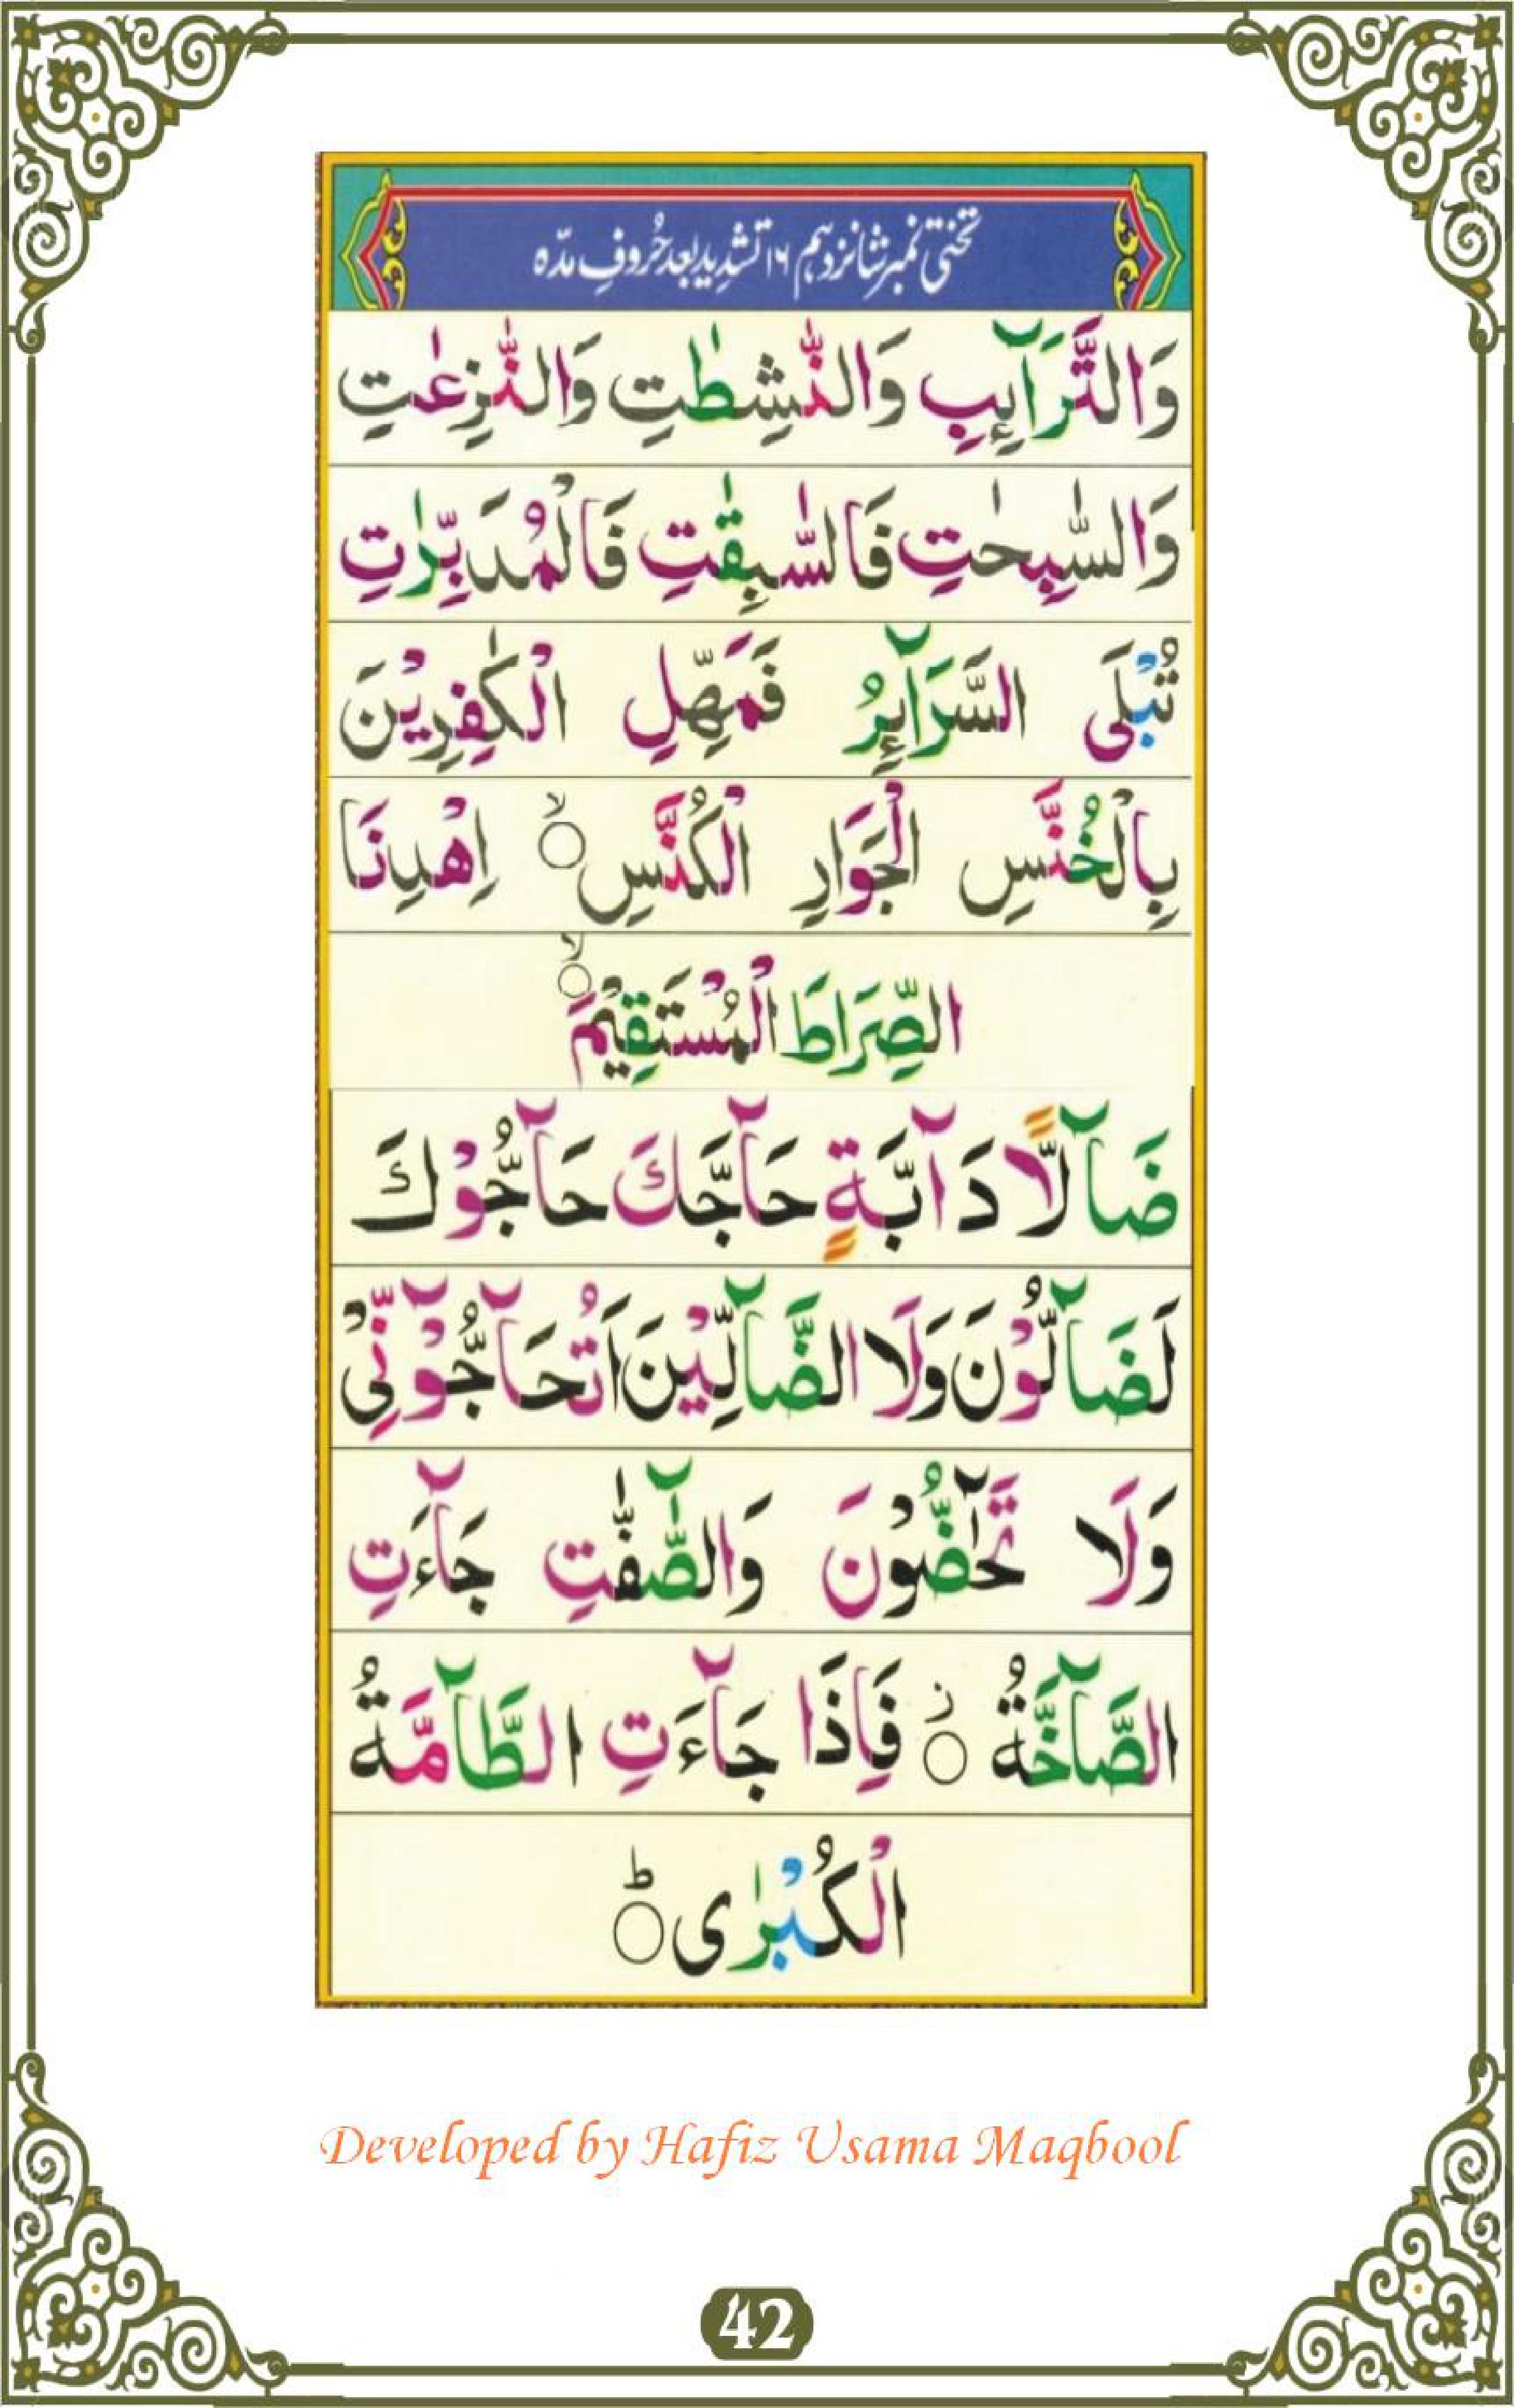 تختی نمبر شانزدہم ۱۶ تشدید بعد حُروفِ مدّہ
وَالتَّرَآئِبِ وَالنّٰشِطٰتِ وَالنّٰزِعٰتِ
وَالسّٰبِحٰتِ فَالسّٰبِقٰتِ فَالْمُدَبِّرٰتِ
تُبْلَى السَّرَآئِرُ فَمَهِّلِ الْكٰفِرِيْنَ
بِالْخُنَّسِ الْجَوَارِ الْكُنَّسِ ۙ اِهْدِنَا
الصِّرَاطَ الْمُسْتَقِيْمَ ۙ
ضَآلًّا دَآبَّةٍ حَآجَّكَ حَآجُّوْكَ
لَضَآلُّوْنَ وَلَا الضَّآلِّيْنَ اَتُحَآجُّوْٓنِّيْ
وَلَا تَحٰٓضُّوْنَ وَالصّٰٓفّٰتِ جَآءَتِ
الصَّآخَّةُ ۫ فَاِذَا جَآءَتِ الطَّآمَّةُ
الْكُبْرٰى ؕ
Developed by Hafiz Usama Maqbool
42